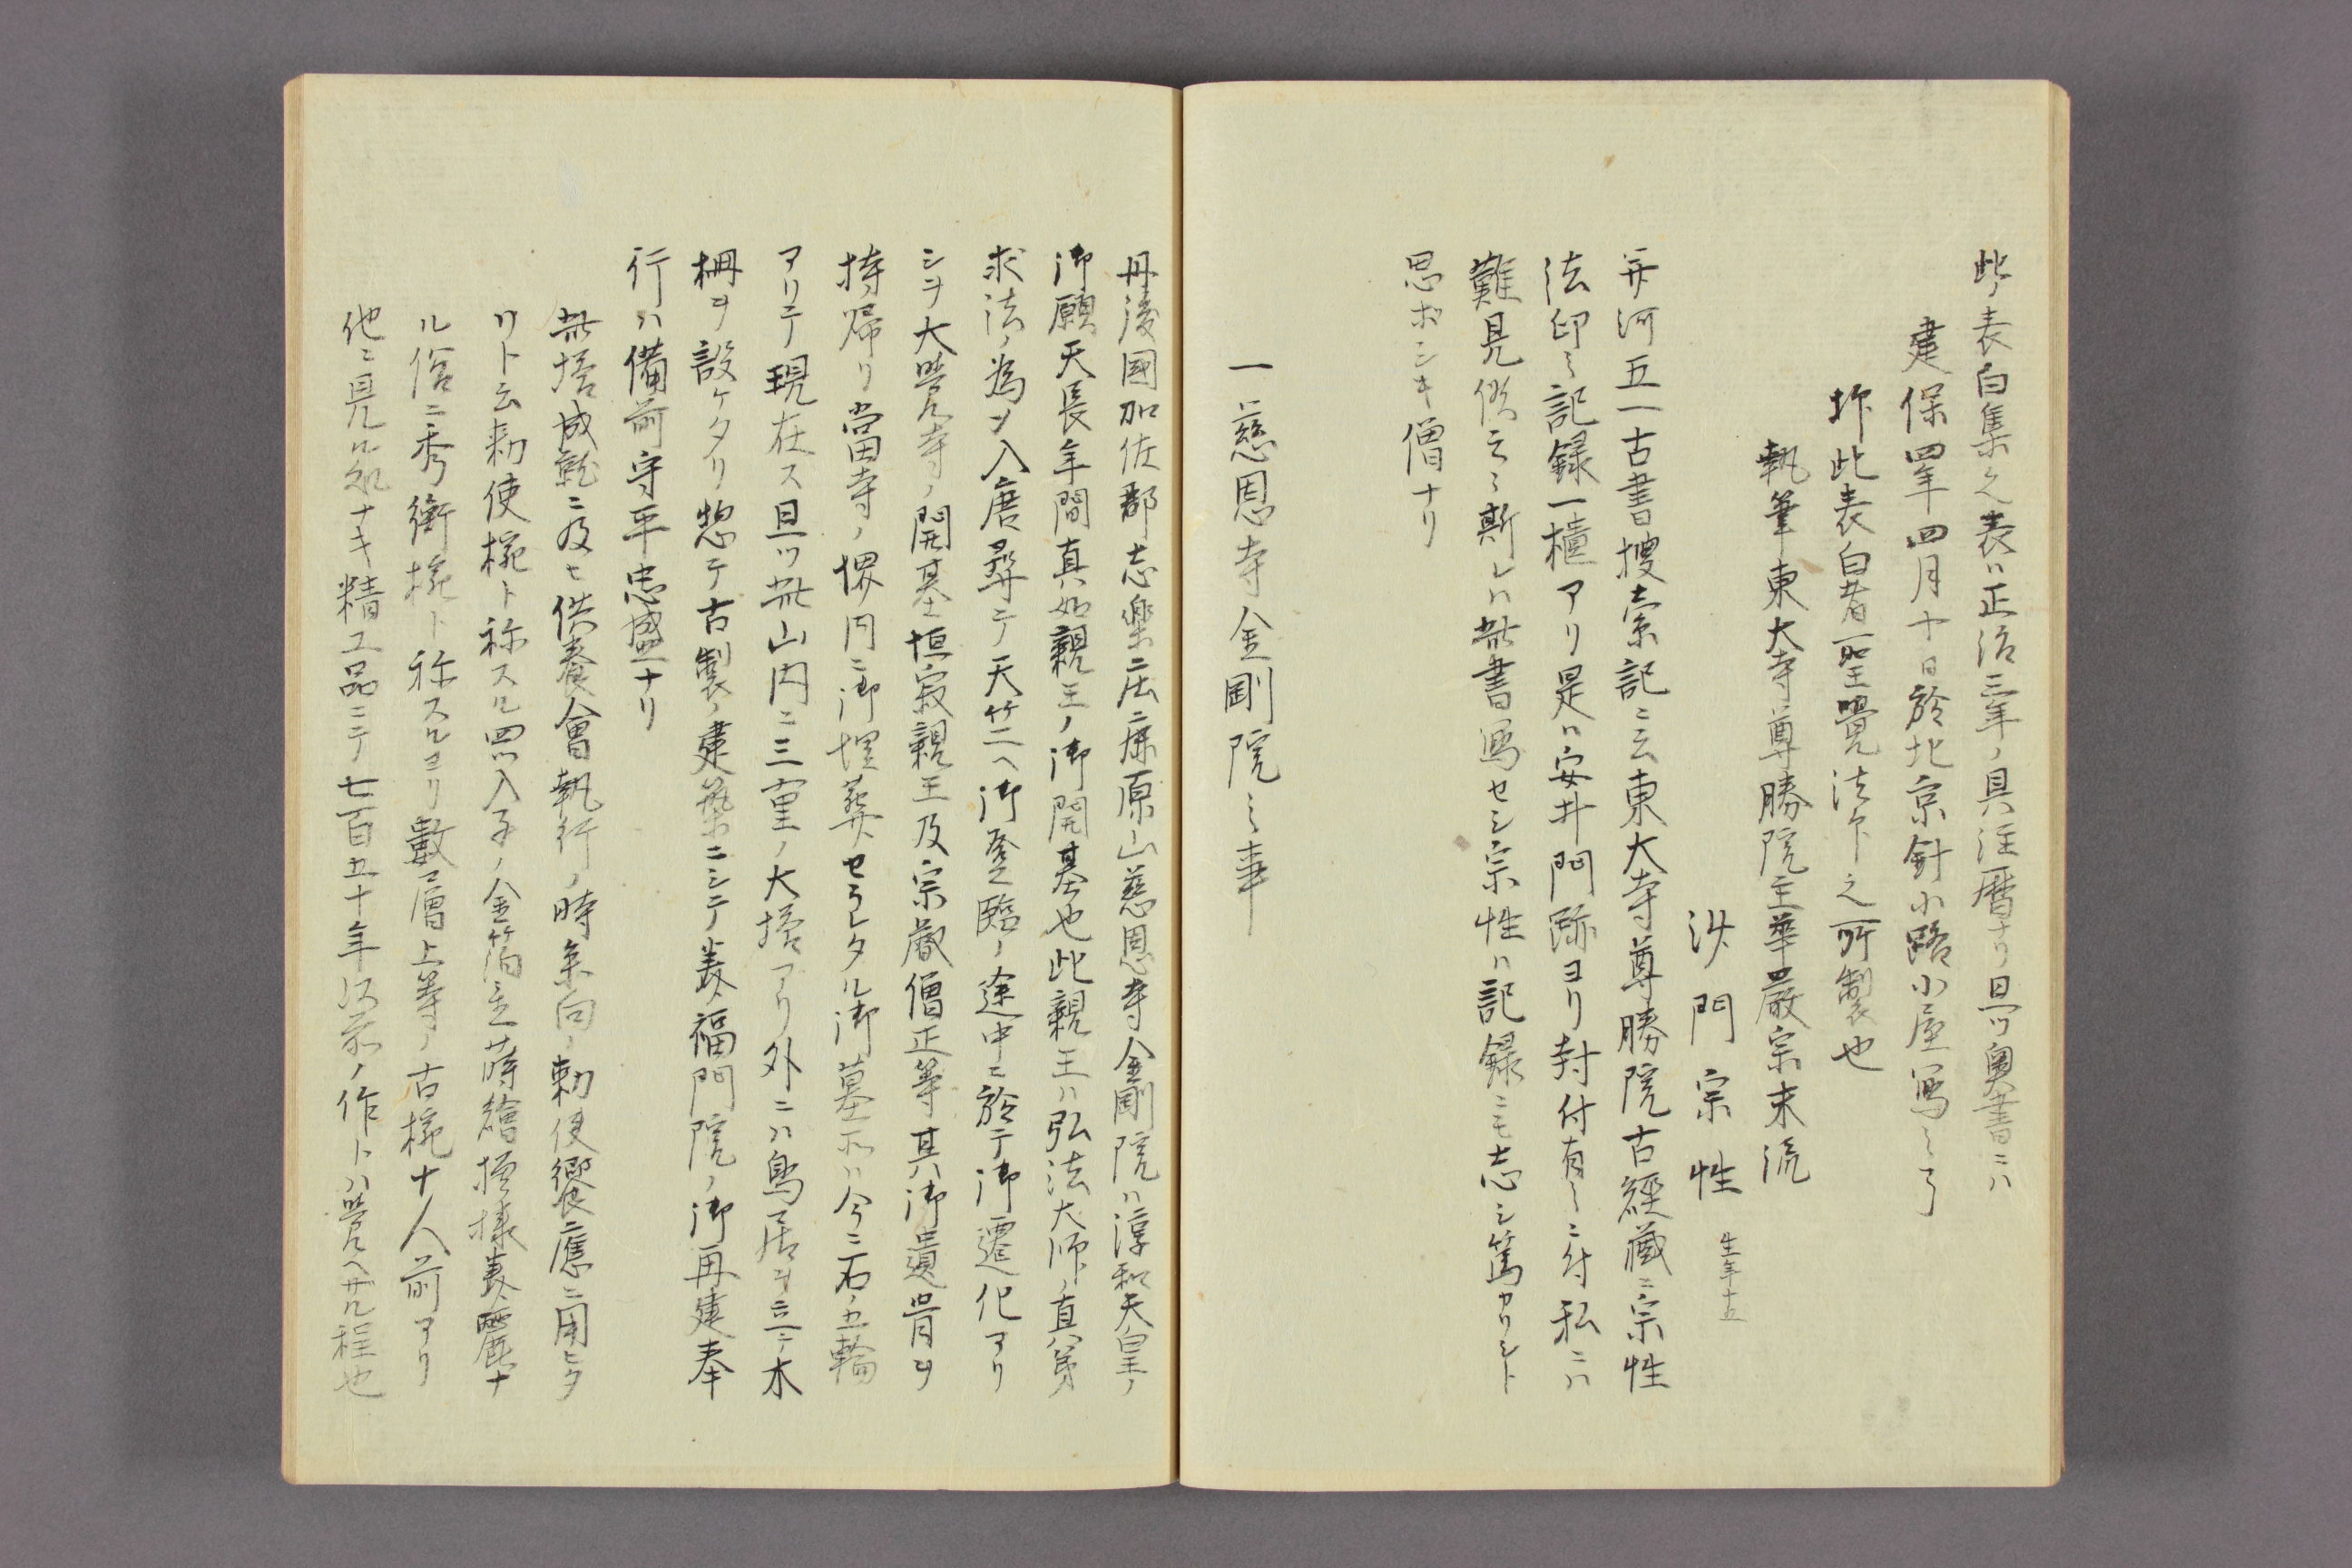 此ノ表白集之表ハ正治三年ノ具注暦ナリ且ツ奥書ニハ
建保四年四月十日於北京針小路小屋写之了
抑此表白者聖覺法印之所製也
執筆東大寺尊勝院主華嚴宗末流
沙門宗性 生年十五
丹河五一古書捜索記ニ云東大寺尊勝院古經藏ニ宗性
法印之記録一櫃アリ是ハ安井門跡ヨリ封付有之ニ付私ニハ
難見候云々斯レハ此書写セシ宗性ハ記録ニモ志シ篤カリシト
思ホシキ僧ナリ
一慈恩寺金剛院之事
丹後國加佐郡志樂庄鹿原山慈恩寺金剛院ハ淳和天皇ノ
御願天長年間真如親王ノ御開基也此親王ハ弘法大師ノ直弟
求法ノ為メ入唐尋テ天竺ヘ御登臨ノ途中ニ於テ御遷化アリ
シヲ大覺寺ノ開基恒寂親王及宗叡僧正等其御遺骨ヲ
持帰リ當寺ノ堺内ニ御埋葬セラレタル御墓所ハ今ニ石ノ五輪
アリテ現在ス且ツ此山内ニ三重ノ大塔アリ外ニハ鳥居ヲ立テ木
柵ヲ設ケタリ惣テ古製ノ建築ニシテ美福門院ノ御再建奉
行ハ備前守平忠盛ナリ
此塔成就ニ及ヒ供養會執行ノ時参向ノ勅使饗應ニ用ヒタ
リト云勅使椀ト称スル四ツ入子ノ金箔置蒔繪模様美麗ナ
ル俗ニ秀衡椀ト称スルヨリ數層上等ノ古椀十人前アリ
他ニ見ルナキ精工品ニテ七百五十年以前ノ作トハ覺ヘサル程也